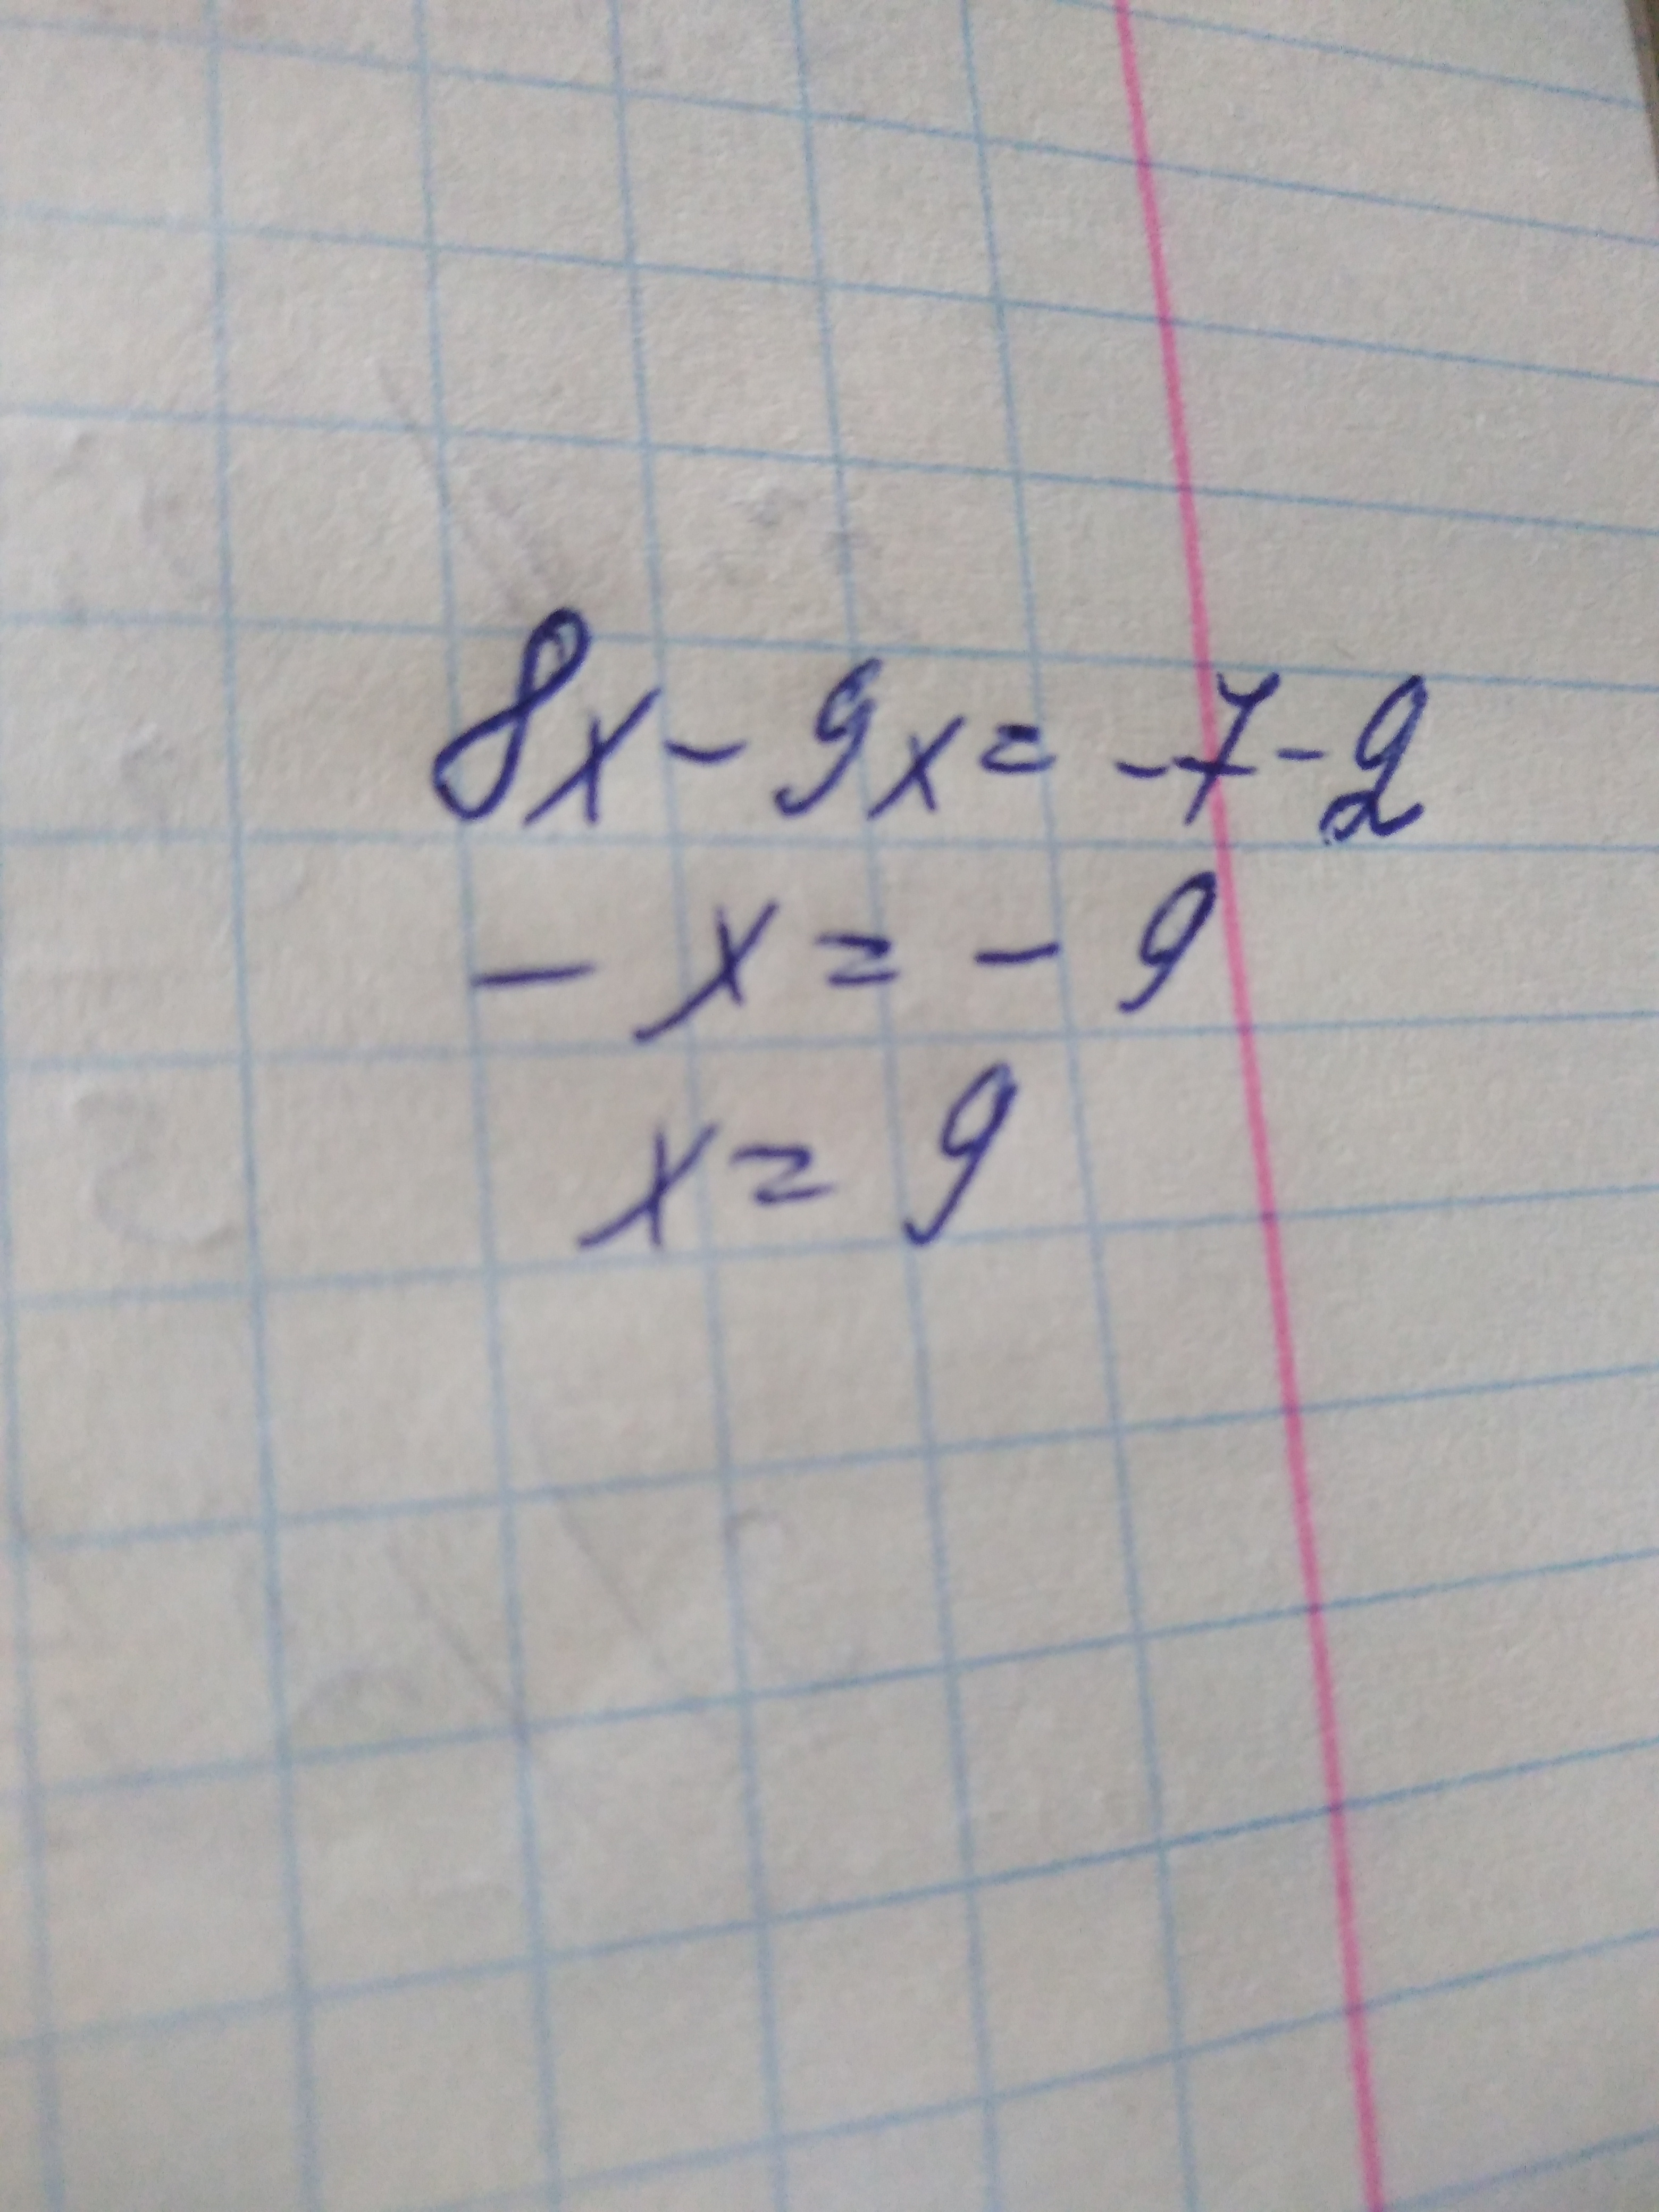 8x - 9x = -7 - 2
- x = - 9
x = 9